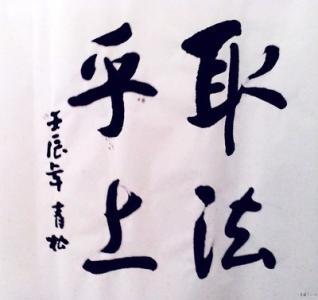 取法
乎上
壬辰年 青松